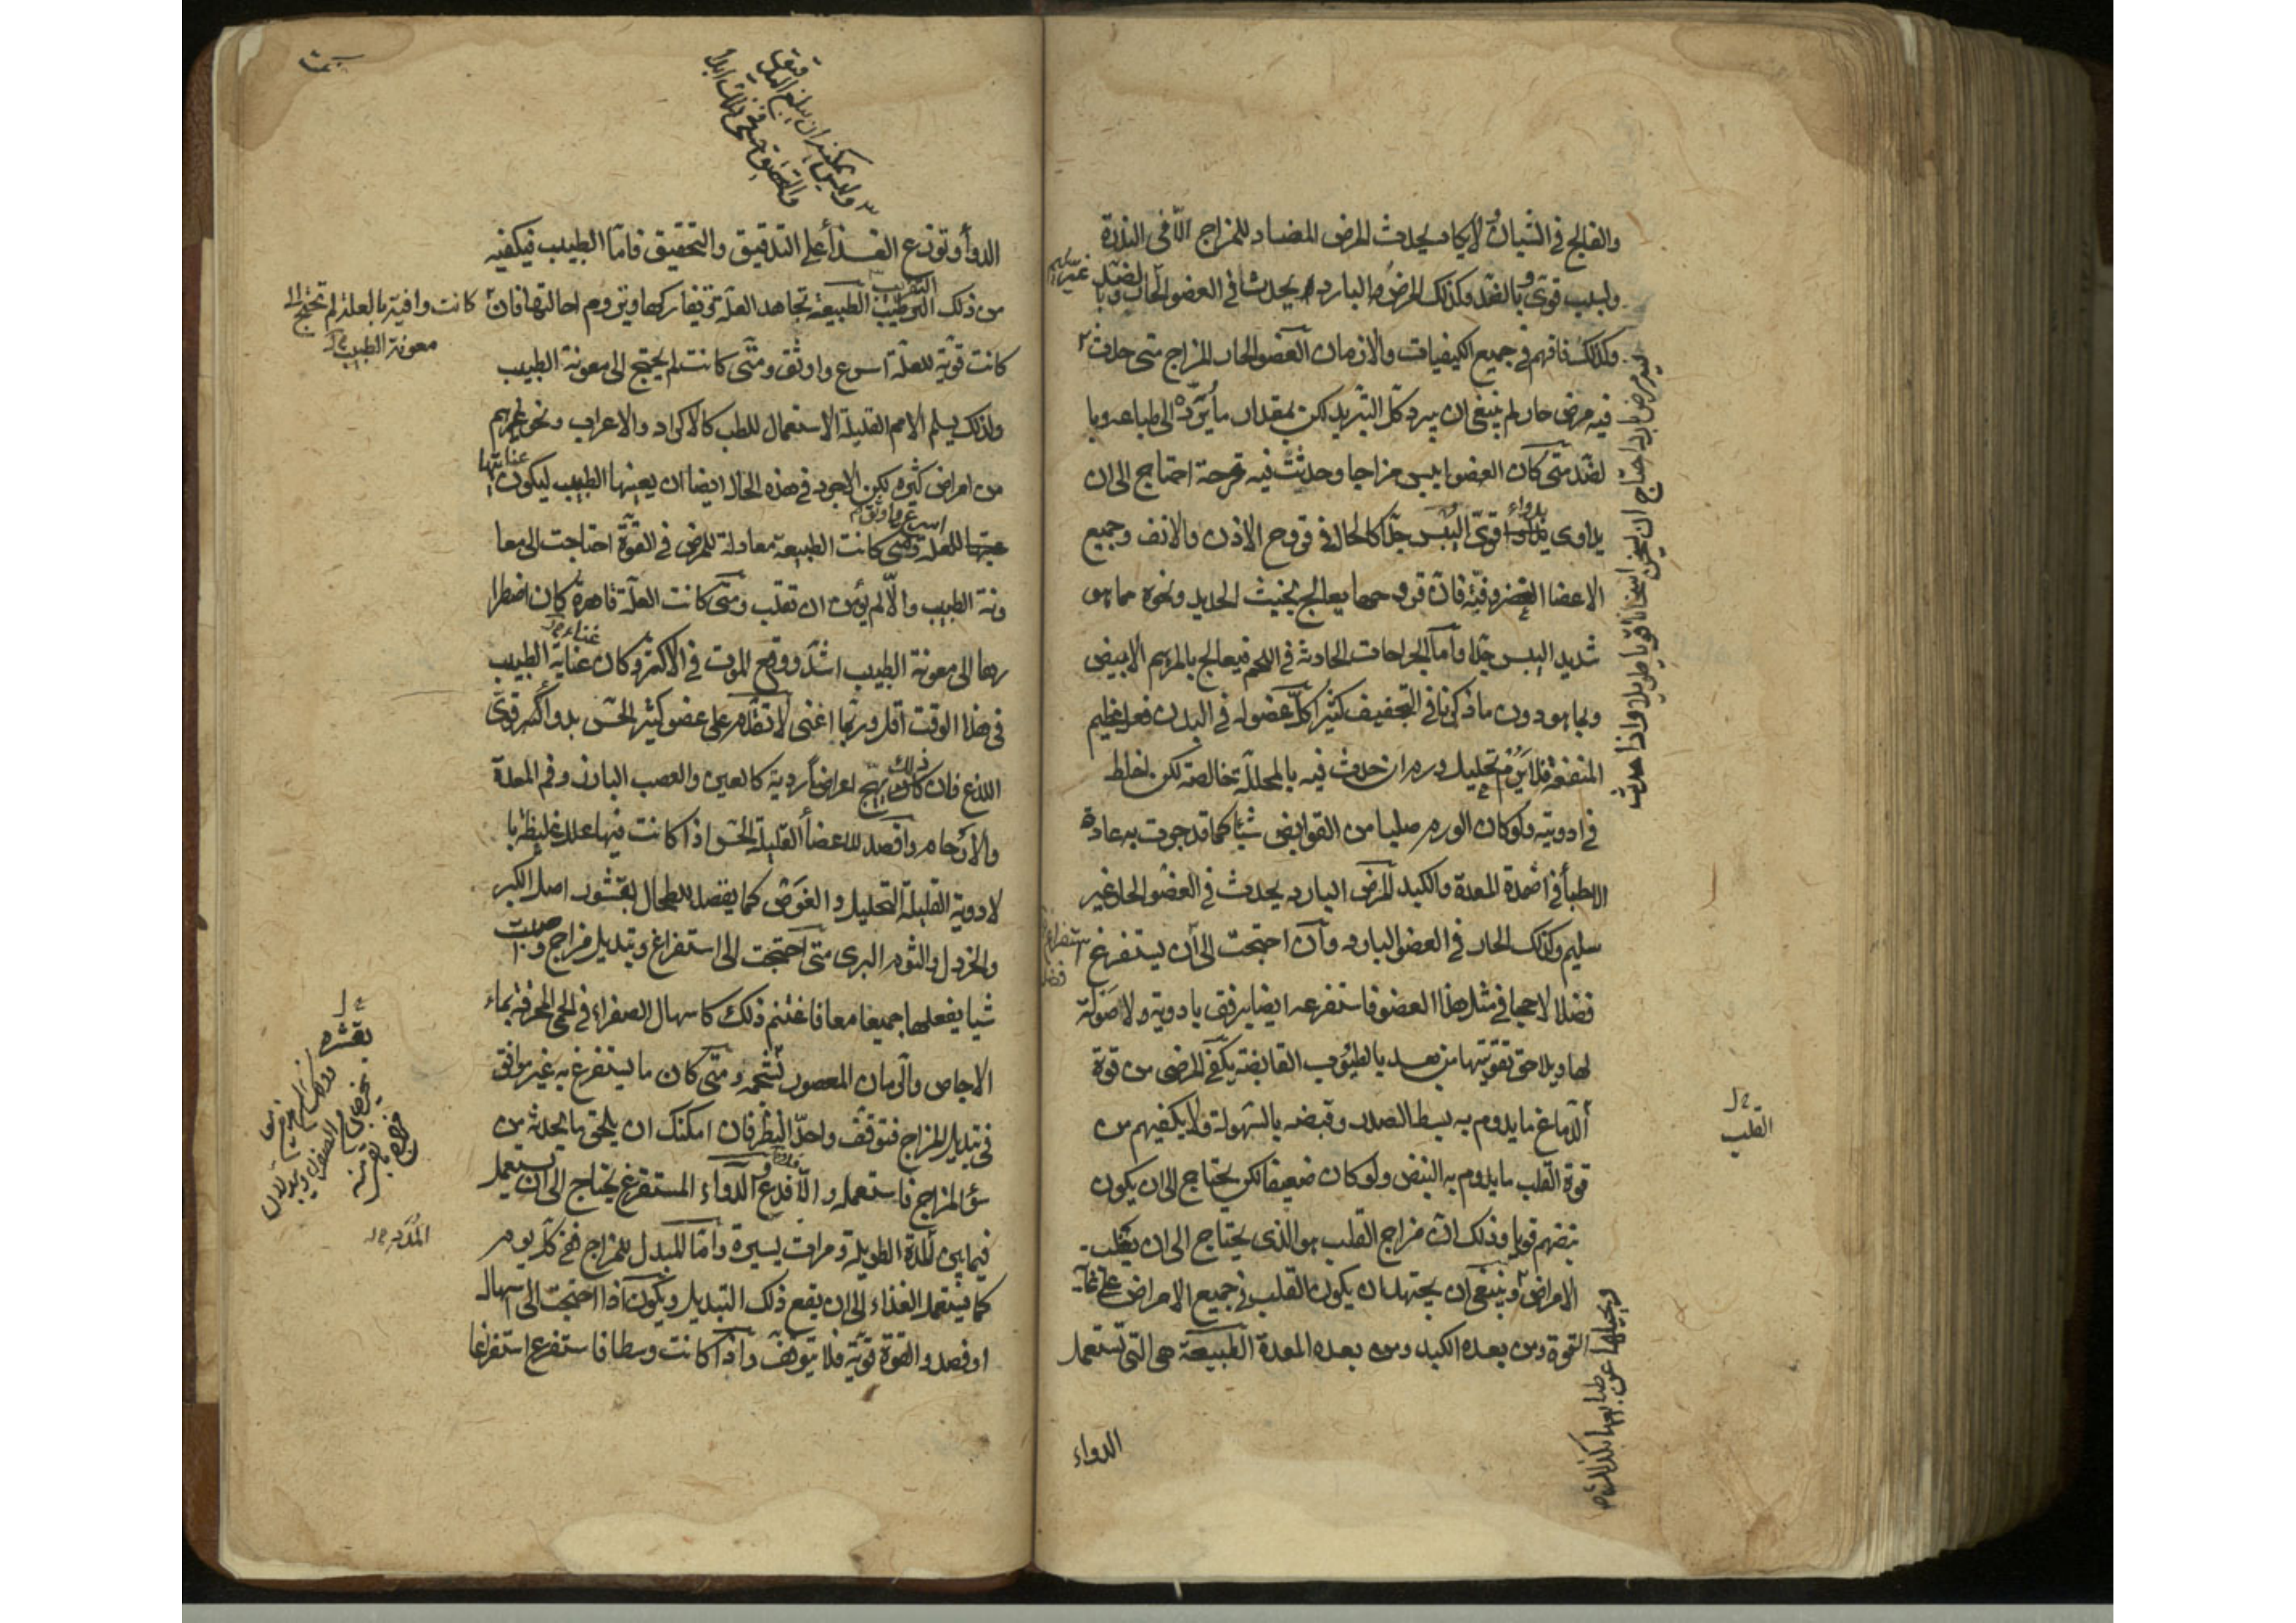 والفالج في الشبان لا يكاد يحدث المرض المضاد للمزاج الا في الندرة
ولسبب قوى وبالضد وكذلك المرض البارد يحدث في العضو الحار وبا لضد
وكذلك فافهم في جميع الكيفيات والازمان العضو الحار المزاج متى حدث
فيه مرض حار لم ينبغ ان يبرد كل التبريد لكن بمقدار ما يرده الى طباعه وبا
لضد متى كان العضو يابس مزاجا وحدثت فيه قرحة احتاج الى ان
يداوى بدواء قوى اليبس جدا كالحال في قروح الاذن والانف وجميع
الاعضا الغضروفية فان قروحها يعالج بخبث الحديد ونحوه مما هو
شديد اليبس جدا واما الجراحات الحادثة في اللحم فيعالج بالمرهم الابيض
وبما هو دون ما ذكرنا في التجفيف كثيرا كل عضو له في البدن فعل عظيم
المنفعة فلا ترم تحليل ورم ان حدث فيه بالمحللة خالصة لكن اخلط
في ادويته ولو كان الورم صلبا من القوابض شيئا كما قد جرت به عادة
الاطبا في اضمدة المعدة والكبد المرض البارد يحدث في العضو الحار غير
سليم وكذلك الحار في العضو البارد وان احتجت الى ان يستفرغ
فضلا لاحجا في مثل هذا العضو فاستفرغه ايضا برفق بادوية ولا صولة
لها وبلا حق تقويتها من بعد بالطيوب القابضة يكفى المرضى من قوة
الدماغ ما يدوم به بسط الصدر وقبضه بالسهولة ولا يكفيهم من
قوة القلب ما يدوم به النبض ولو كان ضعيفا لكن يحتاج الى ان يكون
نبضهم قويا وذلك ان مزاج القلب هو الذي يحتاج الى ان يغلب
الامراض وينبغى ان يجتهد ان يكون القلب في جميع الامراض على غاية
القوة ومن بعده الكبد ومن بعده المعدة الطبيعة هي التي تستعمل
الدواء
القلب
الدوا وتوزع الغذا على التدقيق والتحقيق فاما الطبيب فيكفيه
من ذلك التقريب الطبيعة تجاهد العلة وتفاركها وتروم احالتها فان
كانت وافية بالعلة لم تحتج الى
معونة الطبيب
كانت قوية للعلة اسرع واوثق ومتى كانت لم يحتج الى معونة الطبيب
ولذلك يسلم الامم القليلة الاستعمال للطب كالاكراد والاعراب ونحوهم
من امراض كثيرة لكن الاجود في هذه الحال ايضا ان يعينها الطبيب ليكون
للعلة ومتى كانت الطبيعة معادلة للمرض في القوة احتاجت الى معا
ونة الطبيب والا لم يؤمن ان تغلب ومتى كانت العلة قاهرة كان اضطرا
رها الى معونة الطبيب اشد ووقع الموت في الاكثر وكان عناية الطبيب
في هذا الوقت اقل وربما اغنى لا تقدم على عضو كثير الحس بدواء قوى
اللذع فان ذلك يهيج اعراضا ردية كالعين والعصب البارز وفم المعدة
والارحام واقصد للاعضأ القليلة الحس اذا كانت فيها علل غليظة با
لادوية القليلة التحليل والغوص كما يقصد للطحال بقشور اصل الكبر
والخردل والثوم البرى متى احتجت الى استفراغ وتبديل مزاج واصبت
شيا يفعلهما جميعا معا فاغتنم ذلك كاسهال الصفراء في الحمى المحرقة بماء
الاجاص والرمان المعصور بشحمه ومتى كان ما يستفرغ به غير موافق
في تبديل المزاج فتوقف واجل النظر فان امكنك ان يلحق ما يحدثه من
سؤ المزاج فاستعمله والا فدع الدواء المستفرغ يحتاج الى ان يستعمل
فيما بين المدة الطويلة ومرات يسيرة واما المبدل للمزاج ففى كل يوم
كما يستعمل الغذاء الى ان يقع ذلك التبديل ويكون اذا احتجت الى اسهال
او فصد والقوة قوية فلا تتوقف واذا كانت وسطا فاستفرغ استفراغا